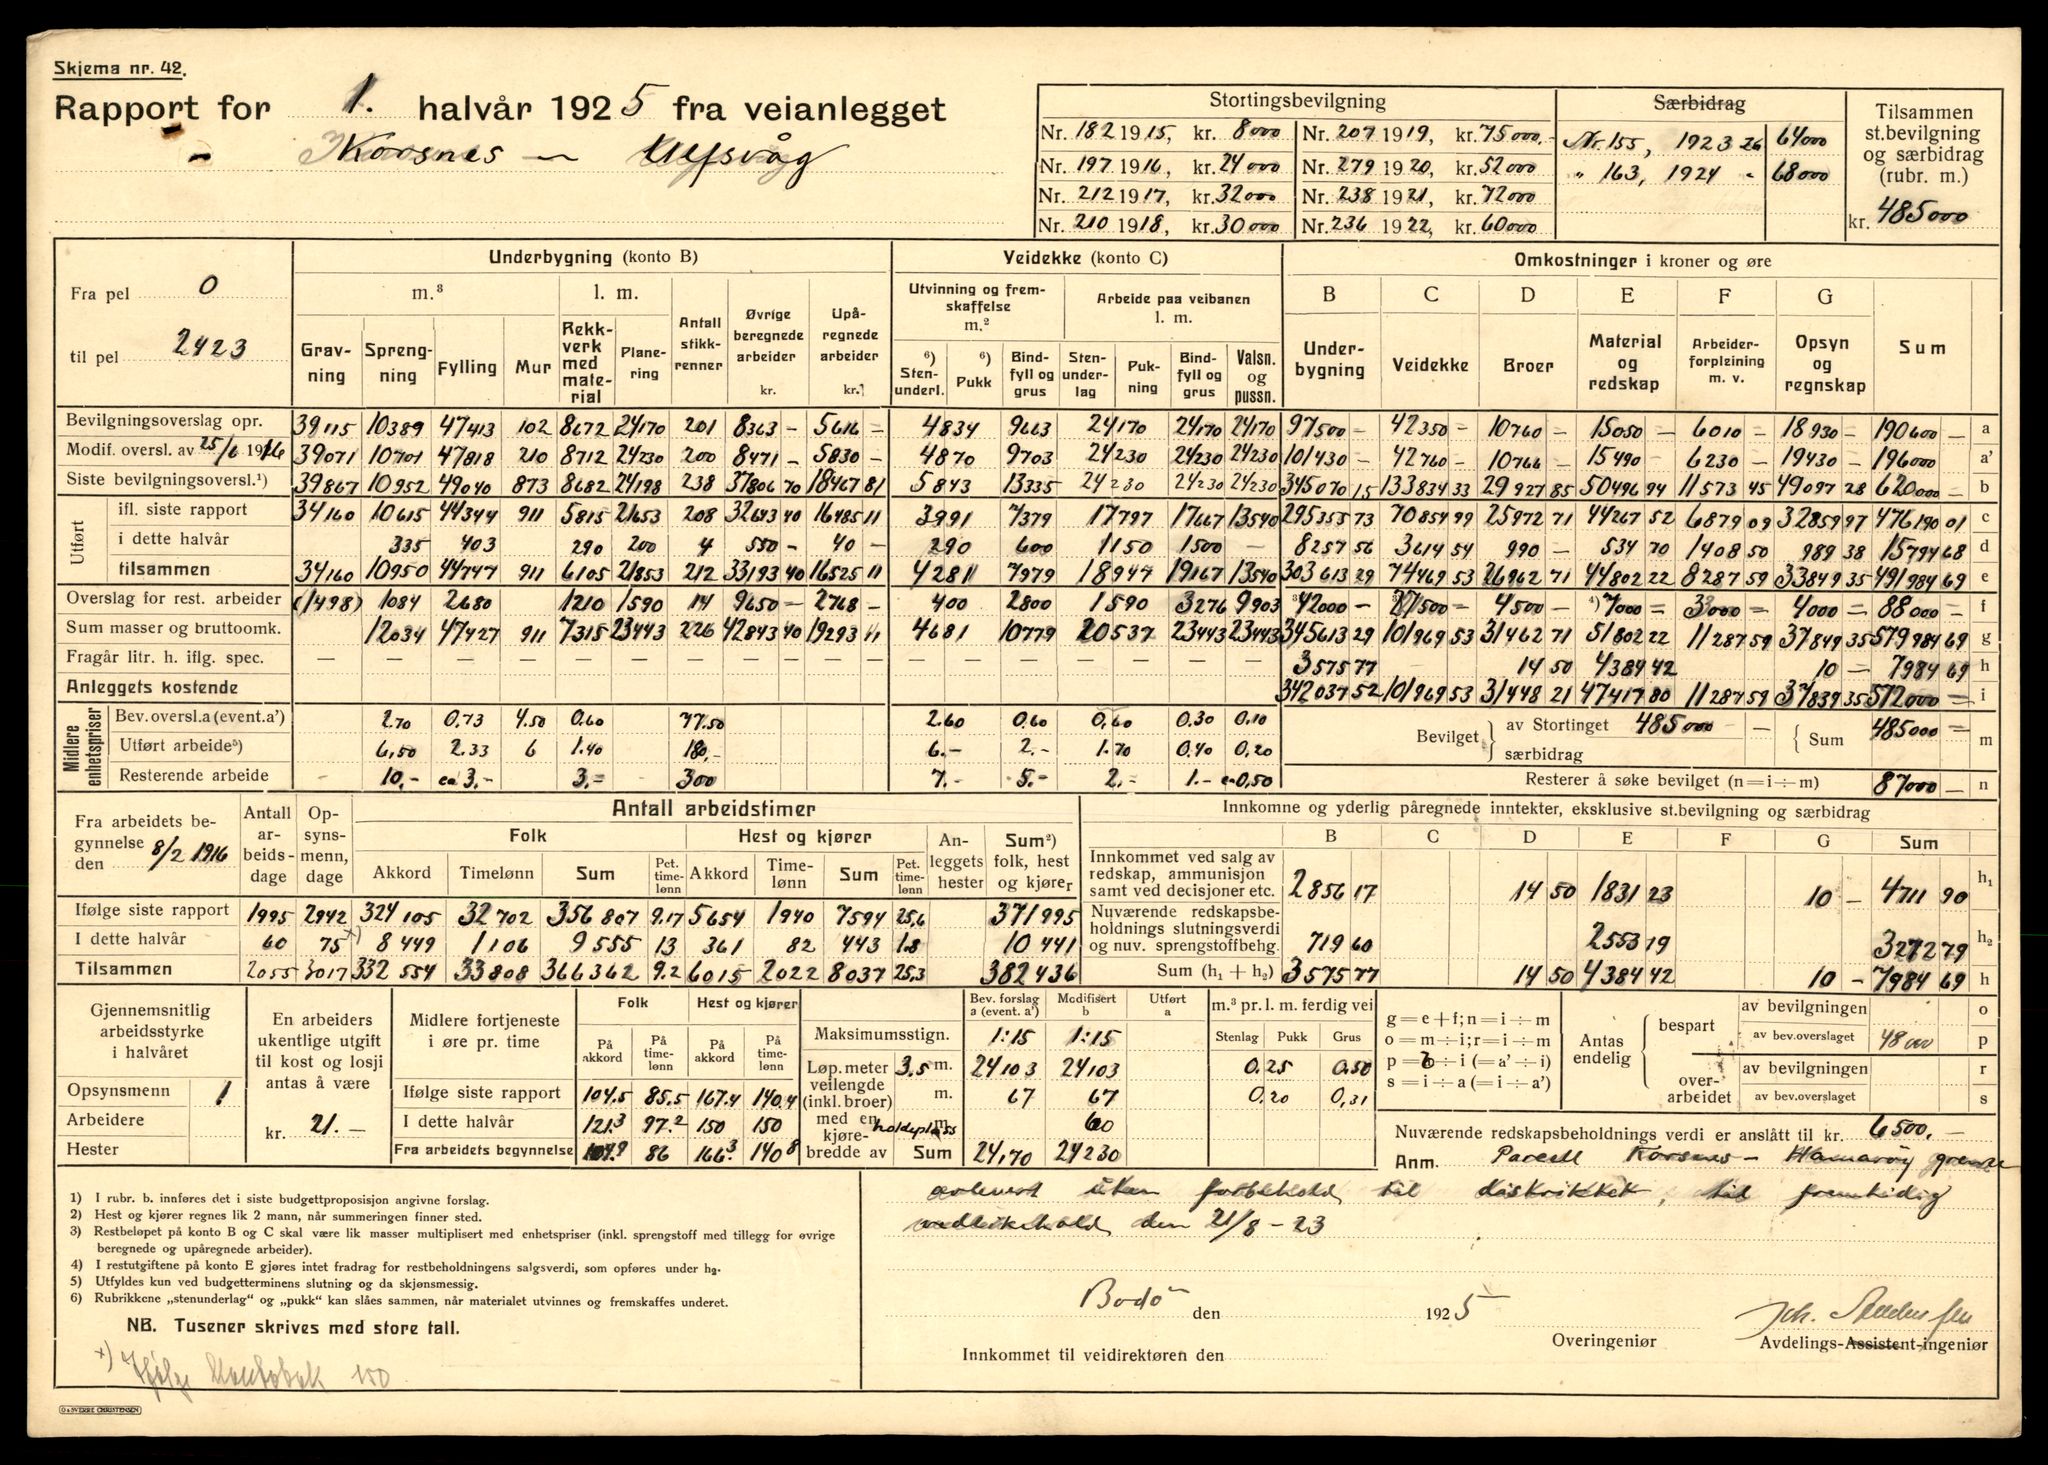 Skjema nr. 42.
Rapport for 1. halvår 1925 fra veianlegget
Korsnes — Ulfsvåg
Stortingsbevilgning
Nr. 182 1915, kr. 8000 Nr. 207 1919, kr. 75000.-
Nr. 197 1916, kr. 24000 Nr. 279 1920, kr. 52000
Nr. 212 1917, kr. 32000 Nr. 238 1921, kr. 72000
Nr. 210 1918, kr. 30000 Nr. 236 1922, kr. 60000
Særbidrag
Nr. 155, 1923 64000
" 163, 1924 - 68000
Tilsammen
st.bevilgning
og særbidrag
(rubr. m.)
kr. 485000
Fra pel 0
til pel 2423
Underbygning (konto B) Veidekke (konto C) Omkostninger i kroner og øre
m.³ l. m. Antall stikk-renner Øvrige beregnede arbeider kr. Upå-regnede arbeider kr.
Utvinning og frem-skaffelse m.² Arbeide paa veibanen l. m.
B C D E F G Sum
Grav-ning Spreng-ning Fylling Mur Rekk-verk med mate-rial Plane-ring
⁶) Stenunderl. ⁶) Pukk Bind-fyll og grus Sten-under-lag Puk-ning Bind-fyll og grus Valsn. og pussn.
Under-bygning Veidekke Broer Material og redskap Arbeider-forpleining m. v. Opsyn og regnskap
Bevilgningsoverslag opr. 39115 10389 47413 102 8672 24170 201 8363 - 5616 - 4834 9663 24170 24170 24170 97500 - 42350 - 10760 - 15050 - 6010 - 18930 - 190600 - a
Modif. oversl. av 25/6 1916 39071 10701 47818 210 8712 24230 200 8471 - 5830 - 4870 9703 24230 24230 24230 101430 - 42760 - 10766 - 15490 - 6230 - 19430 - 196000 - a'
Siste bevilgningsoversl.¹) 39867 10952 49040 873 8682 24198 238 37806 70 18467 81 5843 13335 24230 24230 24230 345070 15 133834 33 29927 85 50496 94 11573 45 49097 28 620000 - b
Utført
ifl. siste rapport 34160 10615 44344 911 5815 21653 208 32643 40 16485 11 3991 7379 17797 17667 13540 295355 73 70854 99 25972 71 44267 52 6879 09 32859 97 476190 01 c
i dette halvår 335 403 290 200 4 550 - 40 - 290 600 1150 1500 - 8257 56 3614 54 990 - 534 70 1408 50 989 38 15794 68 d
tilsammen 34160 10950 44747 911 6105 21853 212 33193 40 16525 11 4281 7979 18947 19167 13540 303613 29 74469 53 26962 71 44802 22 8287 59 33849 35 491984 69 e
Overslag for rest. arbeider (1498) 1084 2680 1210 1590 14 9650 - 2768 - 400 2800 1590 3276 9903 ³42000 - ³27500 - 4500 - ⁴)7000 = 3000 = 4000 = 88000 = f
Sum masser og bruttoomk. 12034 47427 911 7315 23443 226 42843 40 19293 11 4681 10779 20537 23443 23443 345613 29 101969 53 31462 71 51802 22 11287 59 37849 35 579984 69 g
Fragår litr. h. iflg. spec. — — — — — — — — — — — — — — 3575 77 14 50 4384 42 10 - 7984 69 h
Anleggets kostende 342037 52 101969 53 31448 21 47417 80 11287 59 37839 35 572000 = i
Midlere enhetspriser
Bev. oversl. a (event. a') 2.70 0.73 4.50 0.60 77.50 2.60 0.60 0.60 0.30 0.10
Utført arbeide⁵) 6.50 2.33 6 1.40 180.- 6.- 2.- 1.70 0.40 0.20
Resterende arbeide 10.- ca 3.- 3.= 300 7.- 5.- 2.- 1.- ca 0.50
Bevilget av Stortinget 485000 - særbidrag Sum 485000 = m
Resterer å søke bevilget (n = i ÷ m) 87000 - n
Fra arbeidets begynnelse den 8/2 1916
Antall ar-beids-dage Op-syns-menn, dage Antall arbeidstimer
Folk Hest og kjører An-leggets hester Sum²) folk, hest og kjører
Akkord Timelønn Sum Pct. time-lønn Akkord Time-lønn Sum Pct. time-lønn
Ifølge siste rapport 1995 2942 324105 32702 356807 9.17 5654 1940 7594 25.6 371995
I dette halvår 60 75 x) 8449 1106 9555 13 361 82 443 1.8 10441
Tilsammen 2055 3017 332554 33808 366362 9.2 6015 2022 8037 25.3 382436
Innkomne og yderlig påregnede inntekter, eksklusive st.bevilgning og særbidrag
B C D E F G Sum
Innkommet ved salg av redskap, ammunisjon samt ved decisjoner etc. 2856 17 14 50 1831 23 10 - 4711 90 h₁
Nuværende redskapsbe-holdnings slutningsverdi og nuv. sprengstoffbehg. 719 60 2553 19 3272 79 h₂
Sum (h₁ + h₂) 3575 77 14 50 4384 42 10 - 7984 69 h
Gjennemsnitlig arbeidsstyrke i halvåret
Opsynsmenn 1
Arbeidere
Hester
En arbeiders ukentlige utgift til kost og losji antas å være
kr. 21.-
Midlere fortjeneste i øre pr. time
Folk Hest og kjører
På akkord På time-lønn På akkord På time-lønn
Ifølge siste rapport 104.5 85.5 167.4 140.4
I dette halvår 121.3 97.2 150 150
Fra arbeidets begynnelse 104.9 86 166.3 140.8
Bev. forslag a (event. a') Modifisert b Utført a
Maksimumsstign. 1:15 1:15
Løp. meter veilengde (inkl. broer) med en kjøre-bredde av
3.5 m. 24103 24103
m. 67 67
holdeplass 60
Sum 24170 24230
m.³ pr. l. m. ferdig vei
Stenlag Pukk Grus
0.25 0.50
0.20 0.31
g = e + f; n = i ÷ m
o = m ÷ i; r = i ÷ m
p = b ÷ i (= a' ÷ i)
s = i ÷ a (= i ÷ a')
Antas endelig
bespart av bevilgningen o
av bev.overslaget 48000 p
over-arbeidet av bevilgningen r
av bev.overslaget s
Nuværende redskapsbeholdnings verdi er anslått til kr. 6500.-
Anm. Parsell Korsnes - Hamarøy grense
avlevert uten forbehold til distriktet, til fremtidig
vedlikehold den 21/8 - 23
1) I rubr. b. innføres det i siste budgettproposisjon angivne forslag.
2) Hest og kjører regnes lik 2 mann, når summeringen finner sted.
3) Restbeløpet på konto B og C skal være lik masser multiplisert med enhetspriser (inkl. sprengstoff med tillegg for øvrige
beregnede og upåregnede arbeider).
4) I restutgiftene på konto E gjøres intet fradrag for restbeholdningens salgsverdi, som opføres under h₂.
5) Utfyldes kun ved budgetterminens slutning og da skjønsmessig.
6) Rubrikkene „stenunderlag" og „pukk" kan slåes sammen, når materialet utvinnes og fremskaffes underet.
NB. Tusener skrives med store tall.
x) Ifølge 150
Bodø den 1925
Overingeniør
Avdelings-Assistent-ingeniør
Innkommet til veidirektøren den
O. SVERRE CHRISTENSEN